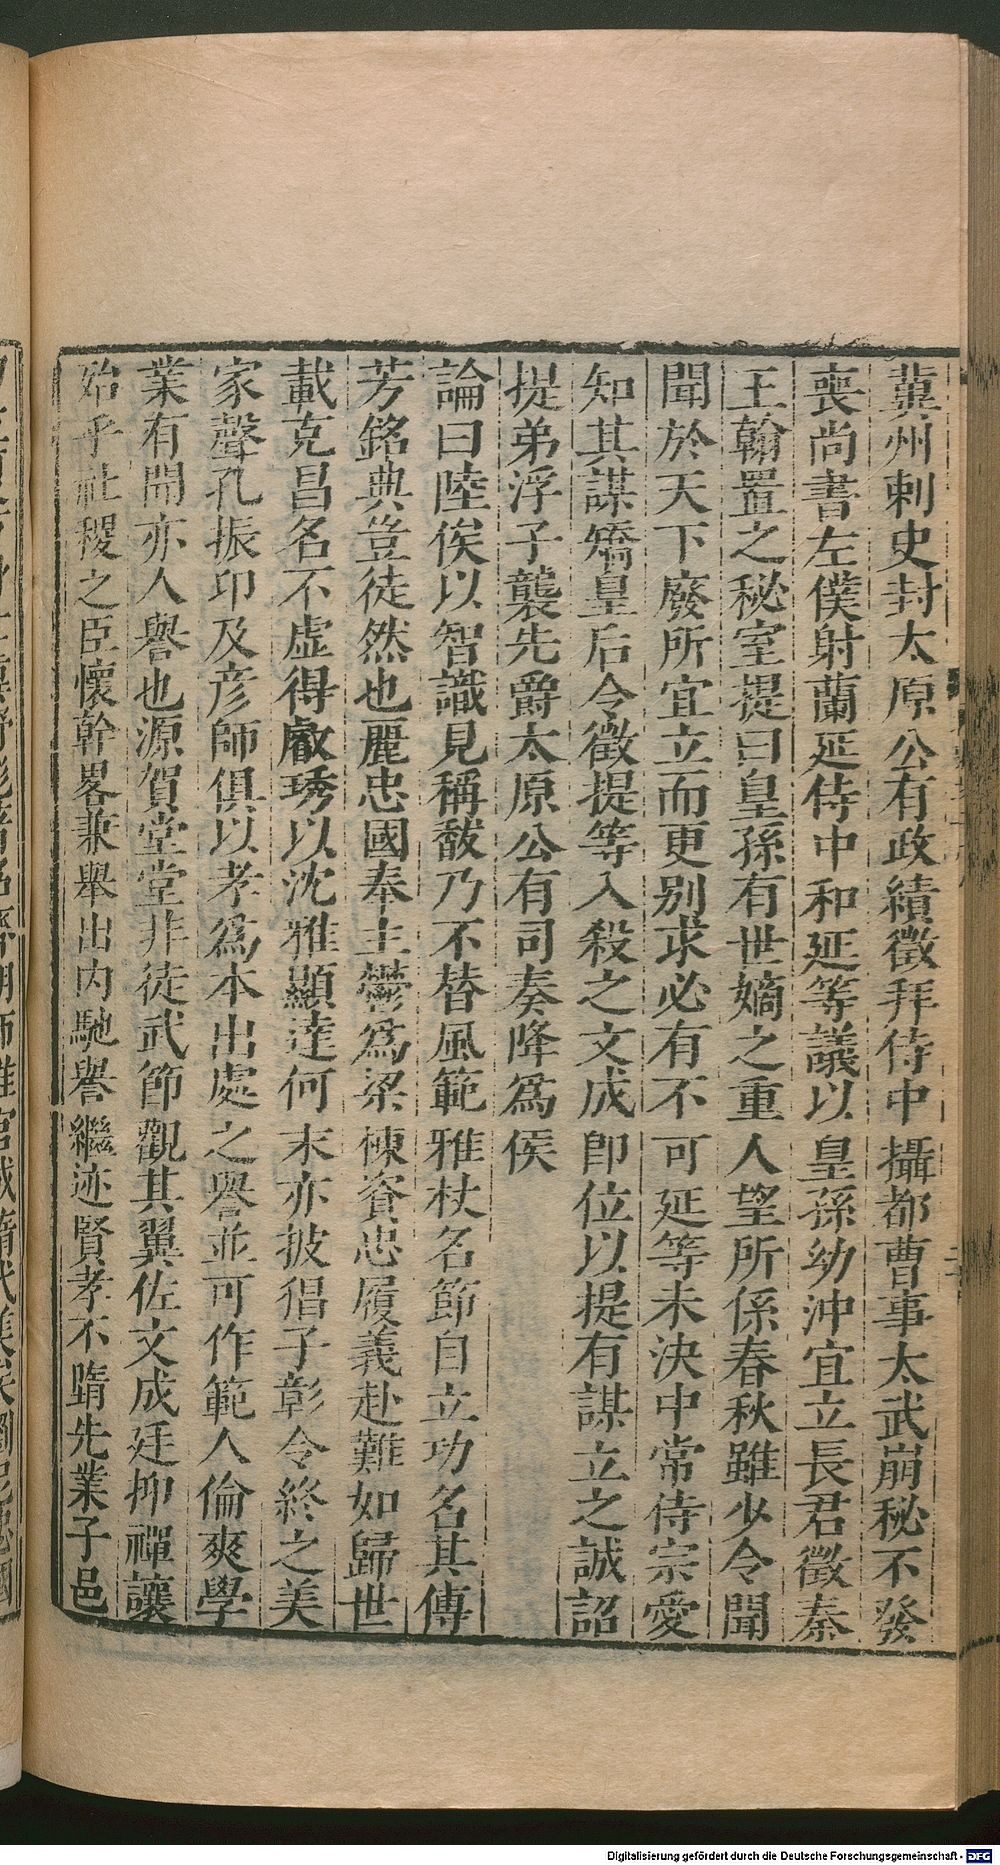 冀州刺史封太原公有政績徵拜侍中攝都曹事太武崩秘不發
喪尚書左僕射蘭延侍中和延等議以皇孫幼沖宜立長君徵秦
王翰置之秘室提曰皇孫有世嫡之重人望所係春秋雖少令聞
聞於天下廢所宜立而更別求必有不可延等未決中常侍宗愛
知其謀矯皇后令徵提等入殺之文成即位以提有謀立之誠詔
提弟浮子襲先爵太原公有司奏降為侯
論曰陸俟以智識見稱馛乃不替風範雅杖名節自立功名其傳
芳銘典豈徒然也麗忠國奉主鬱為梁棟資忠履義赴難如歸世
載克昌名不虛得叡琇以沈雅顯達何末亦披猖子彰令終之美
家聲孔振卬及彦師俱以孝為本出處之譽並可作範人倫爽學
業有聞亦人譽也源賀堂堂非徒武節觀其翼佐文成廷抑禪讓
殆乎社稷之臣懷幹畧兼舉出内馳譽繼迹賢孝不隋先業子邑
Digitalisierung gefördert durch die Deutsche Forschungsgemeinschaft - DFG